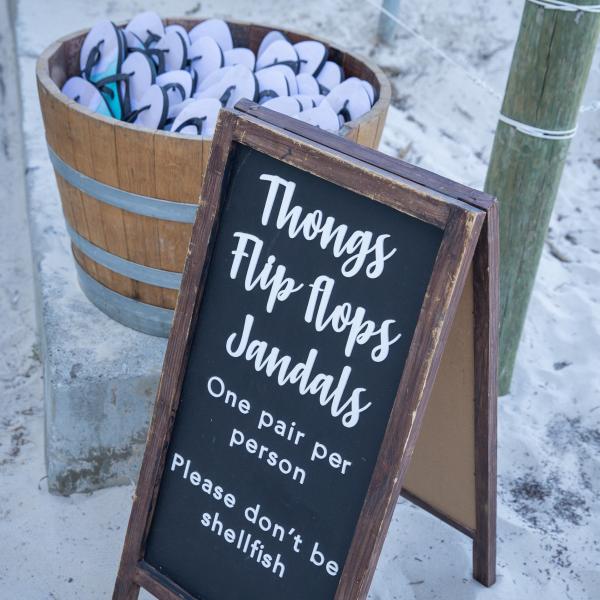 Thongs
Flip flops
Jandals
One pair per
person
Please don't be
shellfish